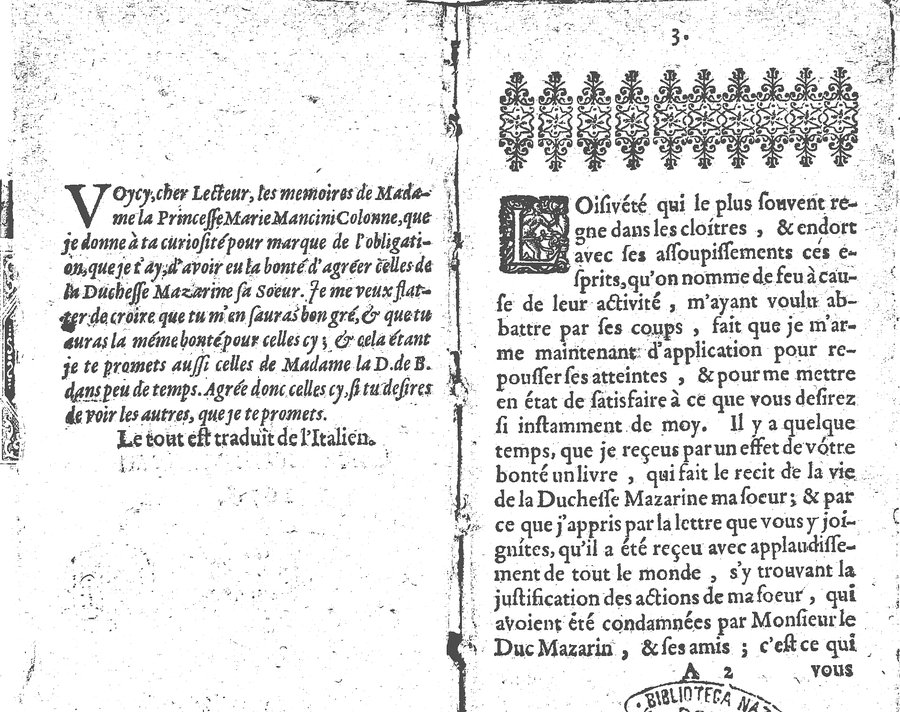 VOycy, cher Lecteur, les memoires de Mada-
me la Princesse Marie Mancini Colonne, que
je donne à ta curiosité pour marque de l'obligati-
on, que je t'ay, d'avoir eu la bonté d'agréer celles de
la Duchesse Mazarine sa Soeur. Je me veux flat-
ter de croire que tu m'en sauras bon gré, & que tu
auras la méme bonté pour celles cy; & cela étant
je te promets aussi celles de Madame la D. de B.
dans peu de temps. Agrée donc celles cy, si tu desires
de voir les autres, que je te promets.
Le tout est traduit de l'Italien.
3.
LOisivété qui le plus souvent re-
gne dans les cloîtres, & endort
avec ses assoupissements cés e-
sprits, qu'on nomme de feu à cau-
se de leur activité, m'ayant voulu ab-
battre par ses coups, fait que je m'ar-
me maintenant d'application pour re-
pousser ses atteintes, & pour me mettre
en état de satisfaire à ce que vous desirez
si instamment de moy. Il y a quelque
temps, que je reçeus par un effet de vôtre
bonté un livre, qui fait le recit de la vie
de la Duchesse Mazarine ma soeur; & par
ce que j'appris par la lettre que vous y joi-
gnítes, qu'il a été reçeu avec applaudisse-
ment de tout le monde, s'y trouvant la
justification des actions de ma soeur, qui
avoient été condamnées par Monsieur le
Duc Mazarin, & ses amis; c'est ce qui
A 2 vous
BIBLIOTECA NAZ